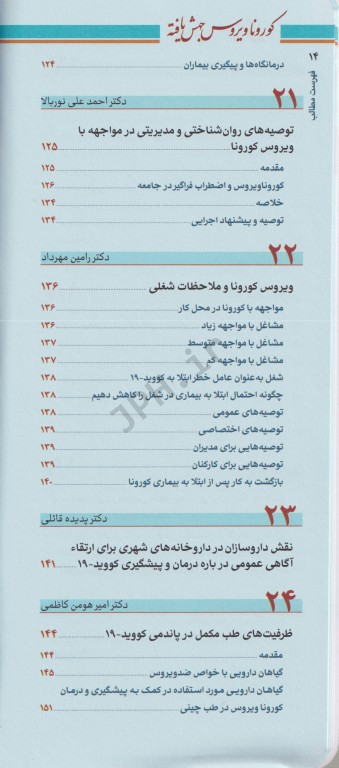 کوروناویروس جهش یافته
۱۴
فهرست مطالب
درمانگاه‌ها و پیگیری بیماران ۱۲۴
۲۱ دکتر احمد علی نوربالا
توصیه‌های روان‌شناختی و مدیریتی در مواجهه با
ویروس کورونا ۱۲۵
مقدمه ۱۲۵
کوروناویروس و اضطراب فراگیر در جامعه ۱۲۶
خلاصه ۱۳۴
توصیه و پیشنهاد اجرایی ۱۳۴
۲۲ دکتر رامین مهرداد
ویروس کورونا و ملاحظات شغلی ۱۳۶
مواجهه با کورونا در محل کار ۱۳۶
مشاغل با مواجهه زیاد ۱۳۶
مشاغل با مواجهه متوسط ۱۳۷
مشاغل با مواجهه کم ۱۳۷
شغل به‌عنوان عامل خطر ابتلا به کووید-۱۹ ۱۳۸
چگونه احتمال ابتلا به بیماری در شغل را کاهش دهیم ۱۳۸
توصیه‌های عمومی ۱۳۸
توصیه‌های اختصاصی ۱۳۹
توصیه‌هایی برای مدیران ۱۳۹
توصیه‌هایی برای کارکنان ۱۳۹
بازگشت به کار پس از ابتلا به بیماری کورونا ۱۴۰
۲۳ دکتر پدیده قائلی
نقش داروسازان در داروخانه‌های شهری برای ارتقاء
آگاهی عمومی در باره درمان و پیشگیری کووید-۱۹ ۱۴۱
۲۴ دکتر امیر هومن کاظمی
ظرفیت‌های طب مکمل در پاندمی کووید-۱۹ ۱۴۴
مقدمه ۱۴۴
گیاهان دارویی با خواص ضدویروس ۱۴۵
گیاهان دارویی مورد استفاده در کمک به پیشگیری و درمان
کورونا ویروس در طب چینی ۱۵۱
JPH.ir